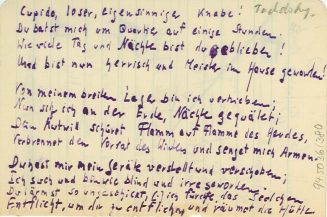 Cupido, loser, eigensinniger Knabe!
Du batst mich um Quartier auf einige Stunden.
Wie viele Tag und Nächte bist du geblieben!
Und bist nun herrisch und Meister im Hause geworden!
Von meinem breiten Lager bin ich vertrieben;
Nun sitz ich an der Erde, Nächte gequälet;
Dein Mutwill schüret Flamm auf Flamme des Herdes,
Verbrennet den Vorrat des Winters und senget mich Armen.
Du hast mir mein Geräte verstellt und verschoben;
Ich such und bin wie blind und irre geworden.
Du lärmst so ungeschickt ich fürchte das Seelchen
Entflieht, um dir zu entfliehen und räumet die Hütte